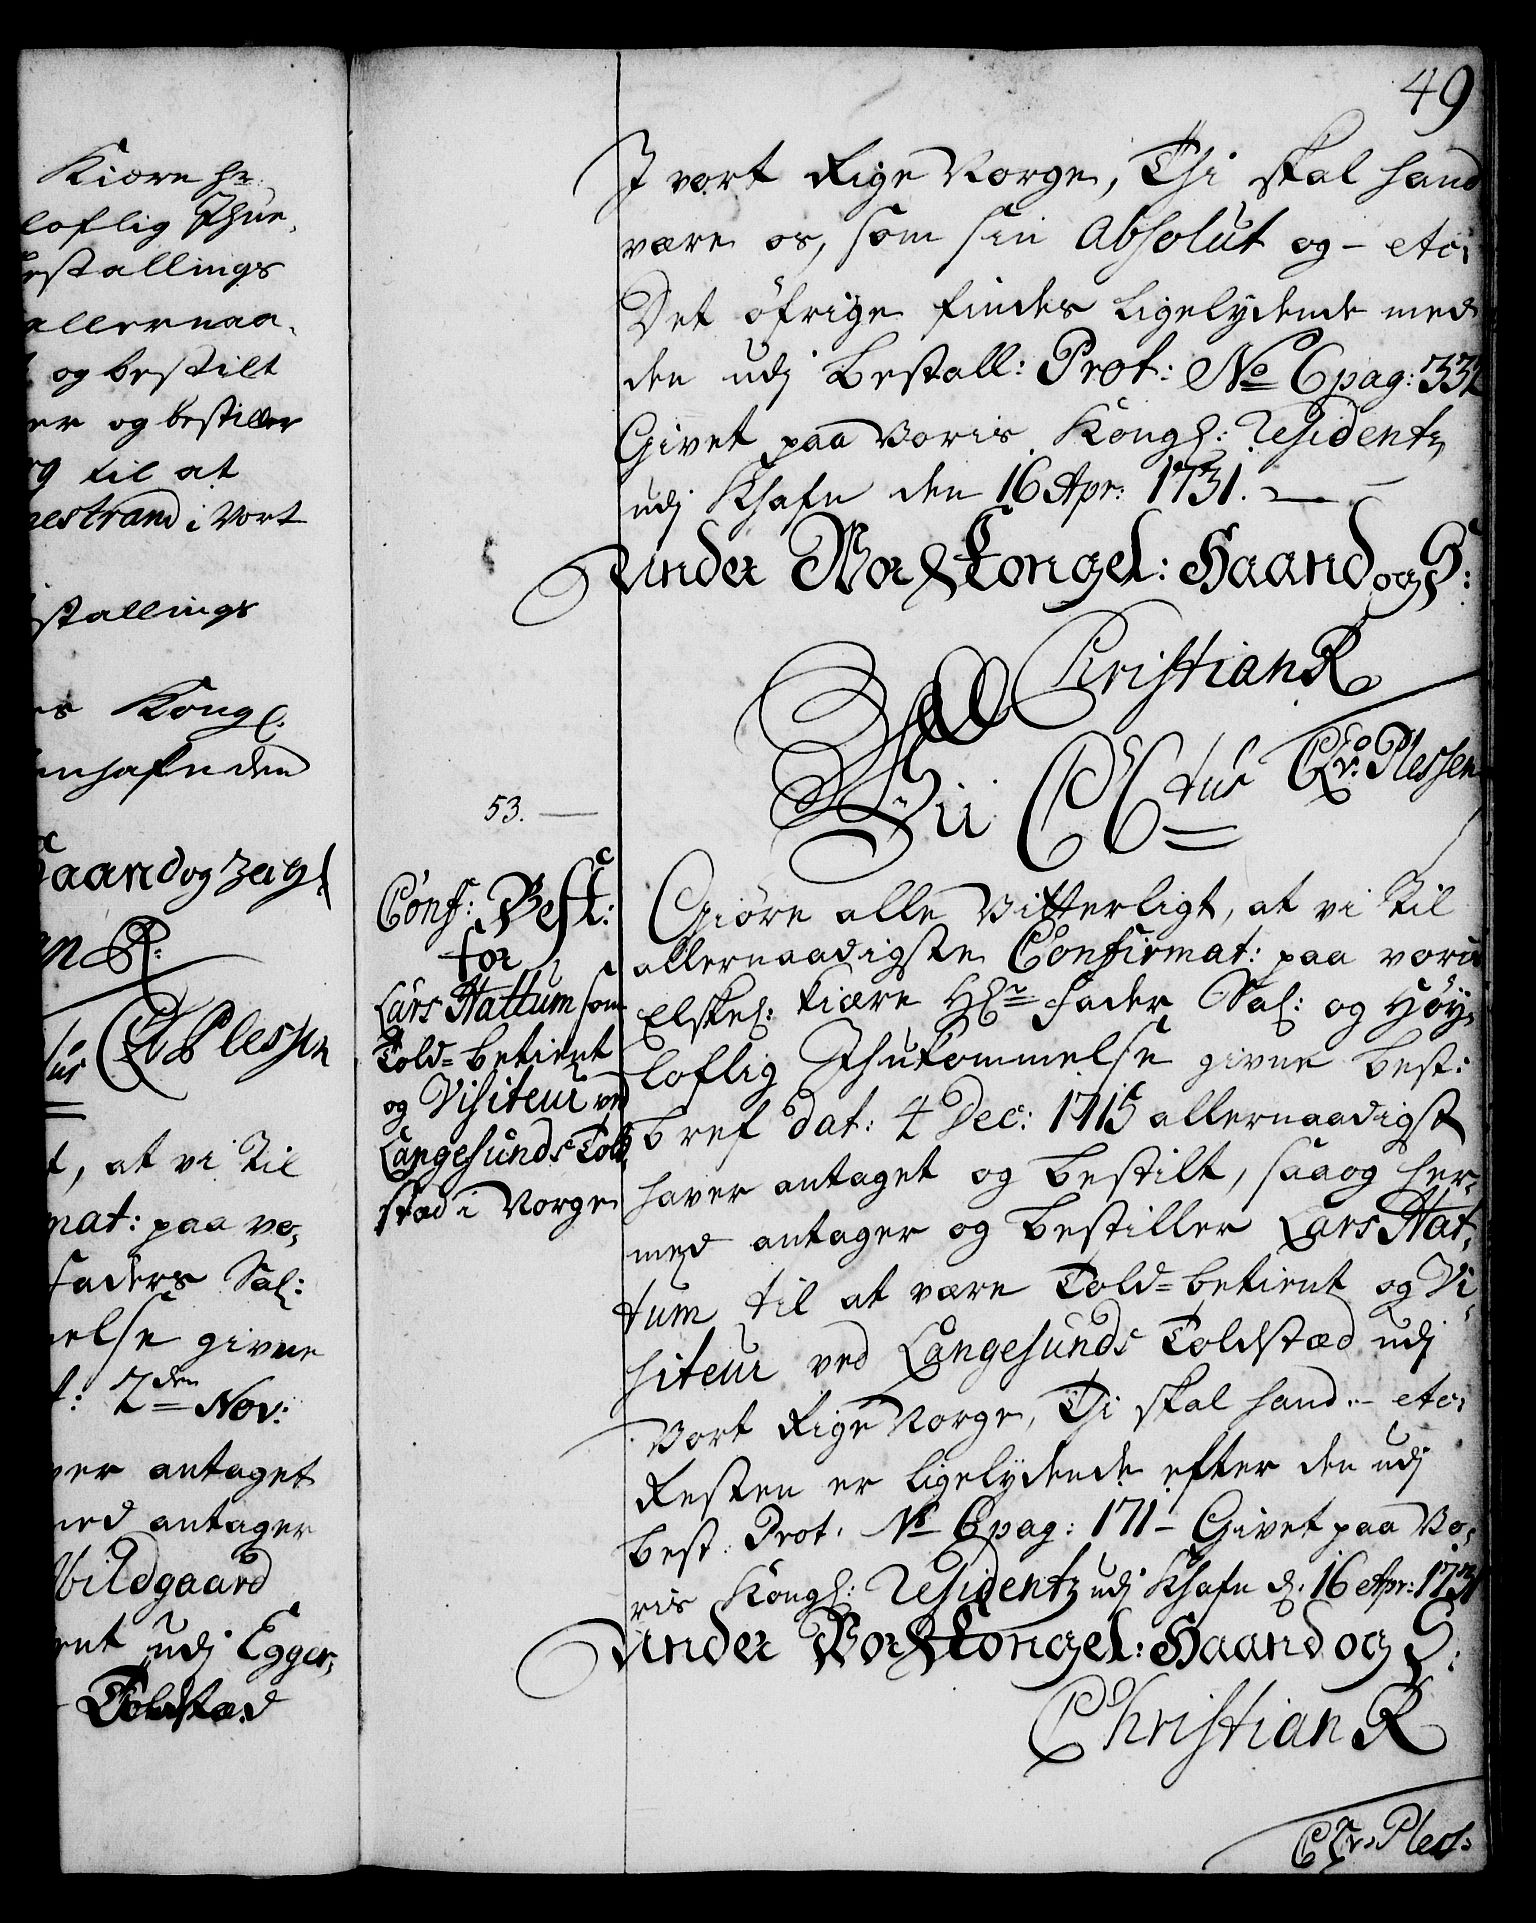 Kiære Hr:
loflig Ihue,
estallings
allernaa,
og bestilt
er og bestiller
til at
nestrand i Vort
stallings
es Kongl:
enhafn den
Haand og Zeigl
an R:
tus CA Plessen
t, at vi til
mat: paa vo,
Faders Sal:
melse givne
t: 2den Nov:
ver antaget
med antager
Abildgaard
ent udj Egger,
Toldstæd
49
I vort Rige Norge, Thi skal hand
være os, som sin Absolut og - etc:
Det öfrige findes ligelydende med
den udj Bestall: Prot: No 6 pag: 332
Givet paa Voris Kongl: Residentz
udj Khafn den 16 Apr: 1731. —
Under Vor Kongel: Haand og S:
Christian R
CAv Plessen
53. —
Vii C 6tus
Conf: Best:
for
Lars Hattum som
Told=betient
og Visiteur ved
Langesunds Told,
stæd i Norge
Giöre alle Vitterligt, at vi til
allernaadigste Confirmat: paa voris
Elskel: kiære Hr Fader Sal: og Höy,
loflig Ihukommelse givne best:
bref dat: 4 Dec: 1715 allernaadigst
haver antaget og bestilt, saa og her,
med antager og bestiller Lars Hat,
tum til at være Told=betient og Vi,
siteur ved Langesunds Toldstæd udj
Vort Rige Norge, Thi skal hand - etc:
Resten er ligelydende efter den udj
best: Prot. No 6 pag: 171 - Givet paa Vo,
ris Kongl: Residentz udj Khafn d. 16 Apr: 1731
Under Vor Kongel: Haand og S:
Christian R
CAv Pless: